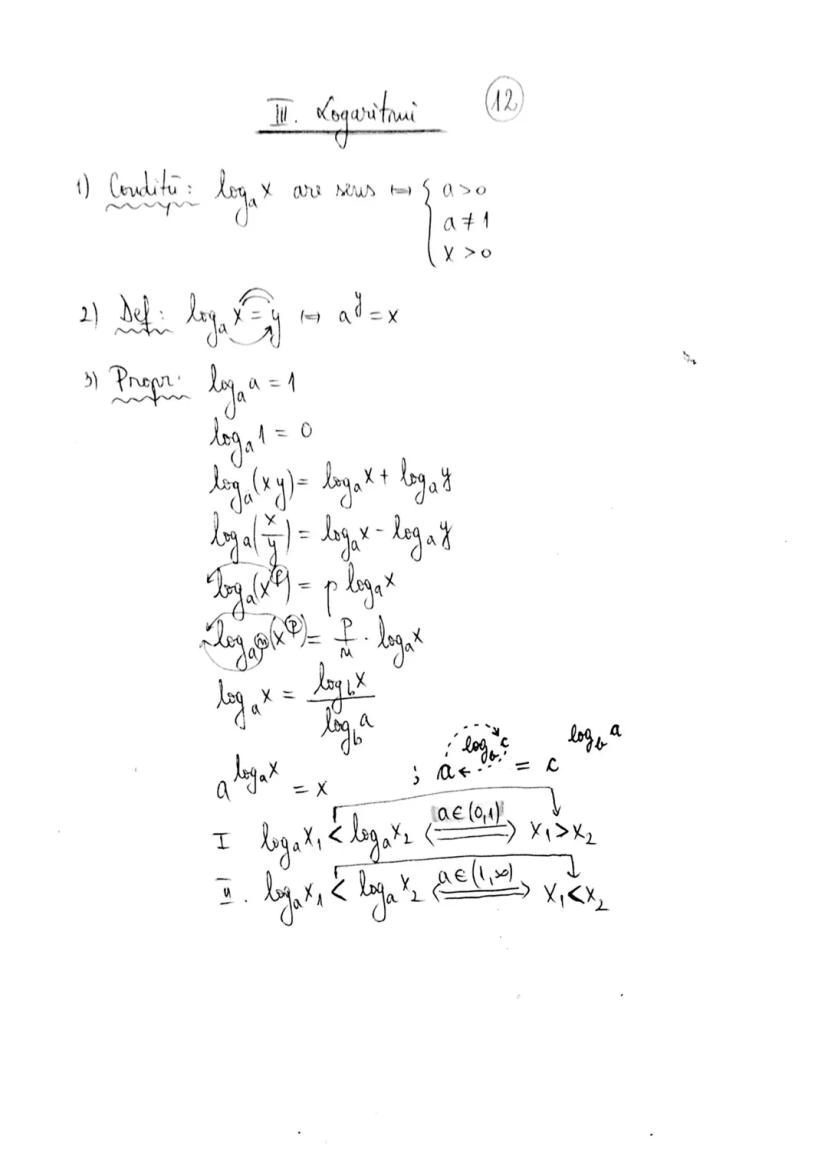 III. Logaritmi 12
1) Condiții: logₐx are sens ⇔ { a>0
a≠1
x>0
2) Def: logₐx = y ⇔ a^y = x
3) Propr: logₐa = 1
logₐ1 = 0
logₐ(xy) = logₐx + logₐy
logₐ(x/y) = logₐx - logₐy
logₐ(x^p) = p logₐx
log_{a^n}(x^p) = p/n · logₐx
logₐx = log_b x / log_b a
a^{logₐx} = x ; a^{log_b c} = c^{log_b a}
I logₐx₁ < logₐx₂ <=a∈(0,1)=> x₁>x₂
II. logₐx₁ < logₐx₂ <=a∈(1,∞)=> x₁<x₂